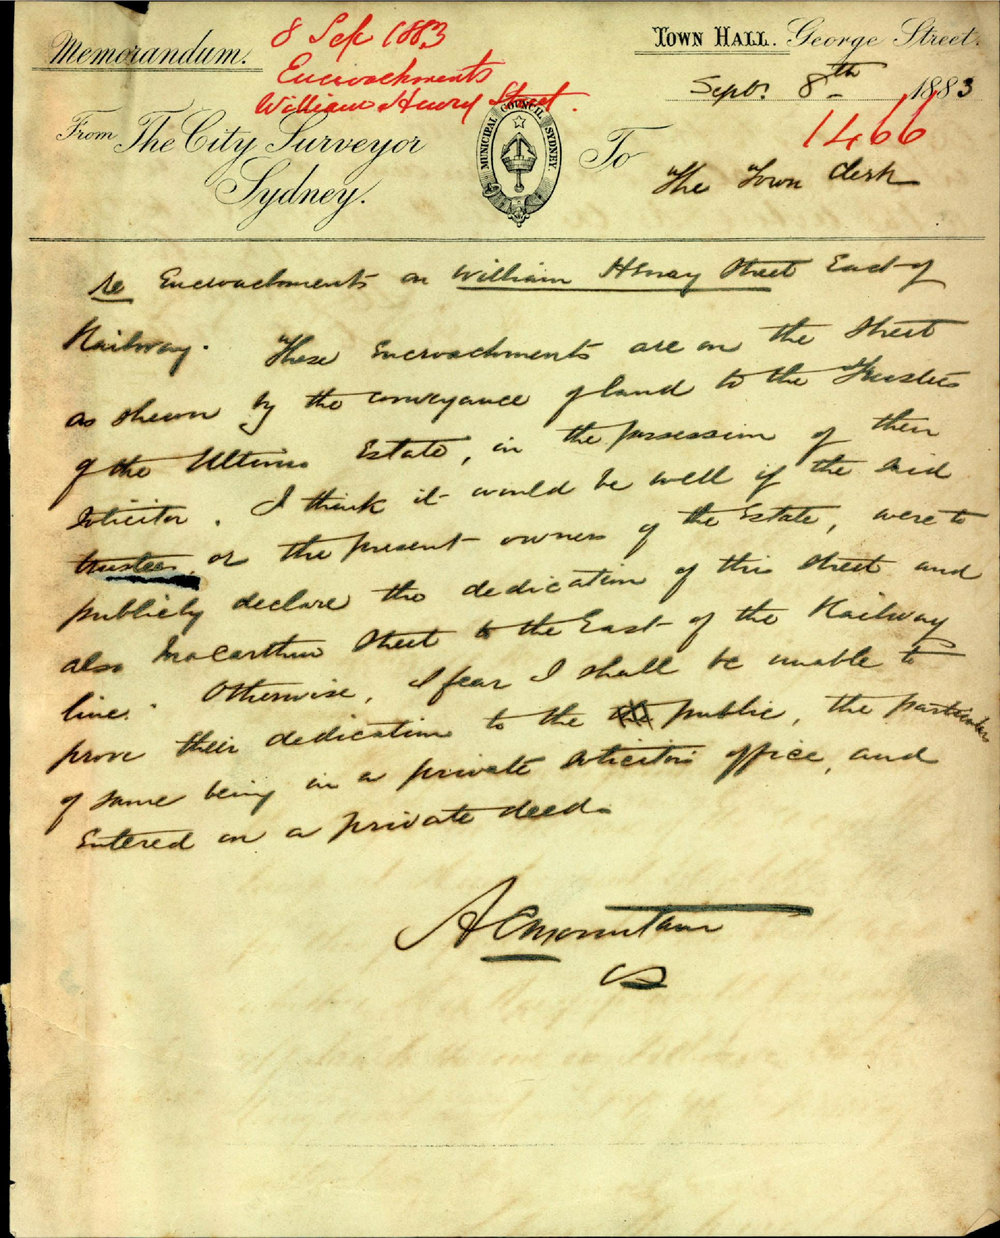 Memorandum.
8 Sep 1883
Encroachments
William Henry Street.
TOWN HALL. George Street.
Sept. 8th 1883
1466
From The City Surveyor
Sydney.
MUNICIPAL COUNCIL SYDNEY.
To
The Town Clerk
re Encroachments on William Henry Street East of
Railway. These Encroachments are on the Street
as shewn by the conveyance of land to the Trustees
of the Ultimo Estate, in the possession of their
solicitor. I think it would be well if the said
trustees, or the present owners of the Estate, were to
publicly declare the dedication of this Street and
also Macarthur Street to the East of the Railway
line. Otherwise, I fear I shall be unable to
prove their dedication to the public, the particulars
of same being in a private solicitors office, and
Entered on a private deed.
CS